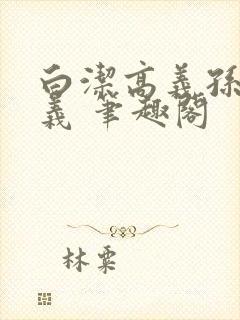 白潔高義孫
義 筆趣閣
林粟